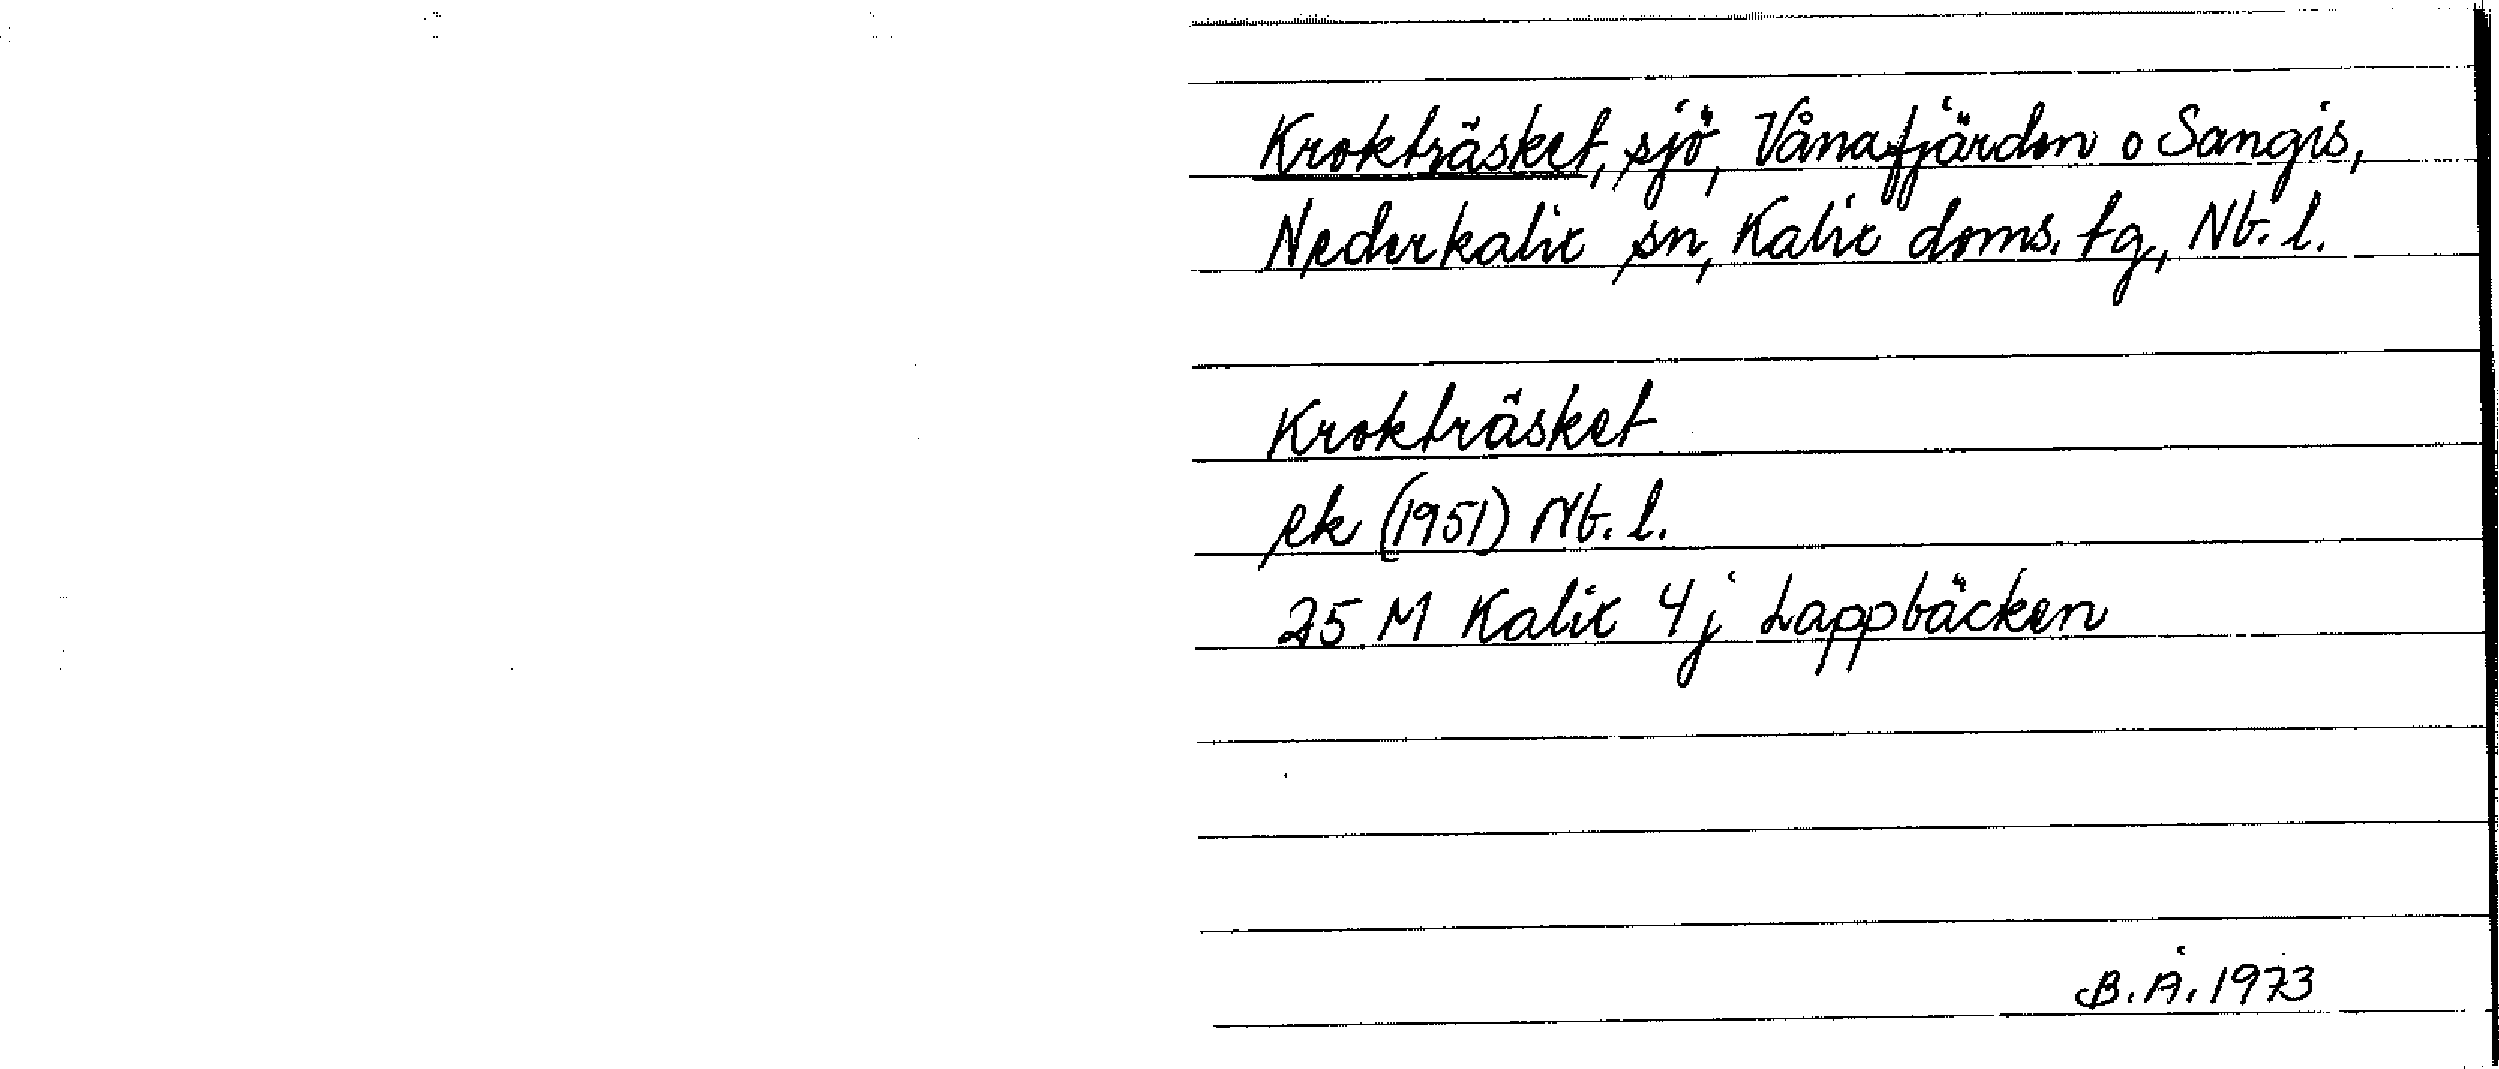 Krokträsket, sjö, Vånafjärden o Sangis,
Nederkalix sn, Kalix doms. tg, Nb. l.
Krokträsket
ek (1951) Nb. l.
25 M Kalix 4j Lappbäcken
B. Å. 1973